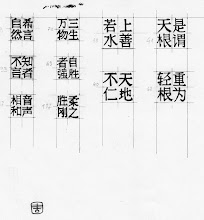 是谓天根
重为轻根
上善若水
天地不仁
三生万物
自胜者强
柔之胜刚
希言自然
知者不言
音声相和